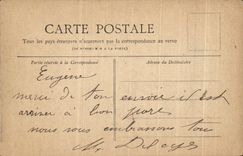 CARTE POSTALE
Tous les pays étrangers n'acceptent pas la correspondance au verso
(SE RENSEIGNER A LA POSTE)
Partie réservée à la Correspondance
Adresse du Destinataire
Eugène
merci de ton envoie il est
arriver à bon port
nous vous embrassons tou